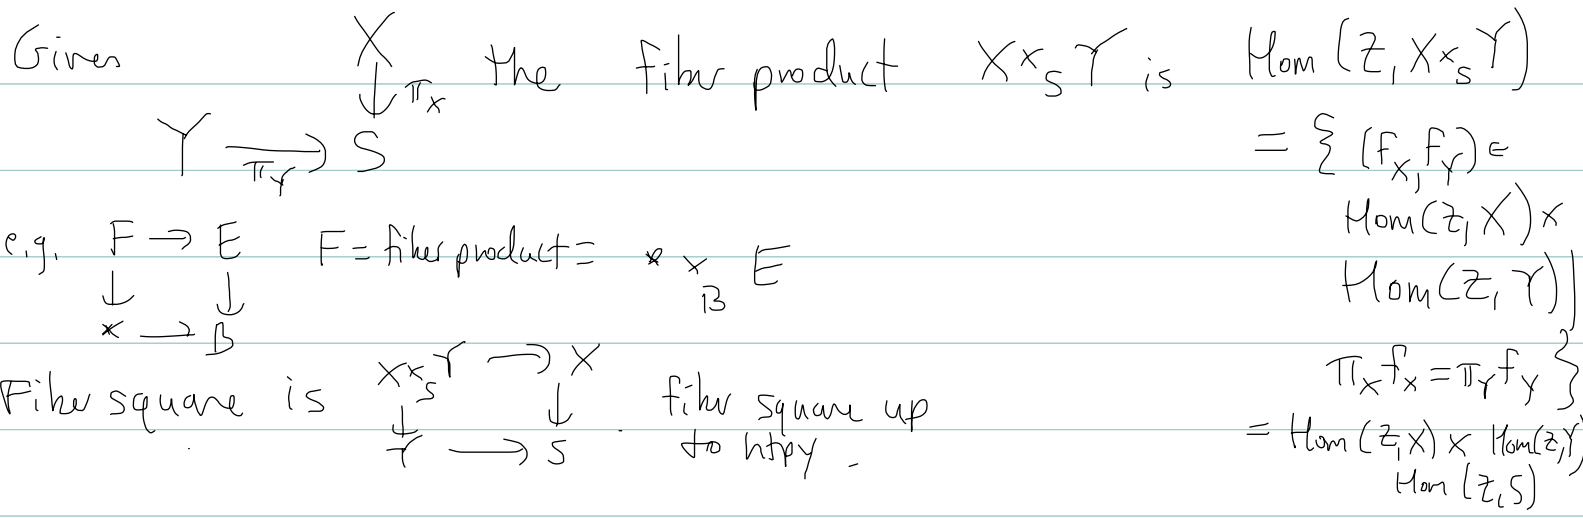 Given X the fiber product X×_S Y is Hom(Z, X×_S Y)
↓ π_X
Y → S
π_Y
= { (f_X, f_Y) ∈
Hom(Z, X) ×
Hom(Z, Y) |
π_X f_X = π_Y f_Y }
= Hom(Z, X) × Hom(Z, Y)
Hom(Z, S)
e.g. F → E F = fiber product = * ×_B E
↓ ↓
* → B
Fiber square is X×_S Y → X . fiber square up
↓ ↓ to htpy.
Y → S